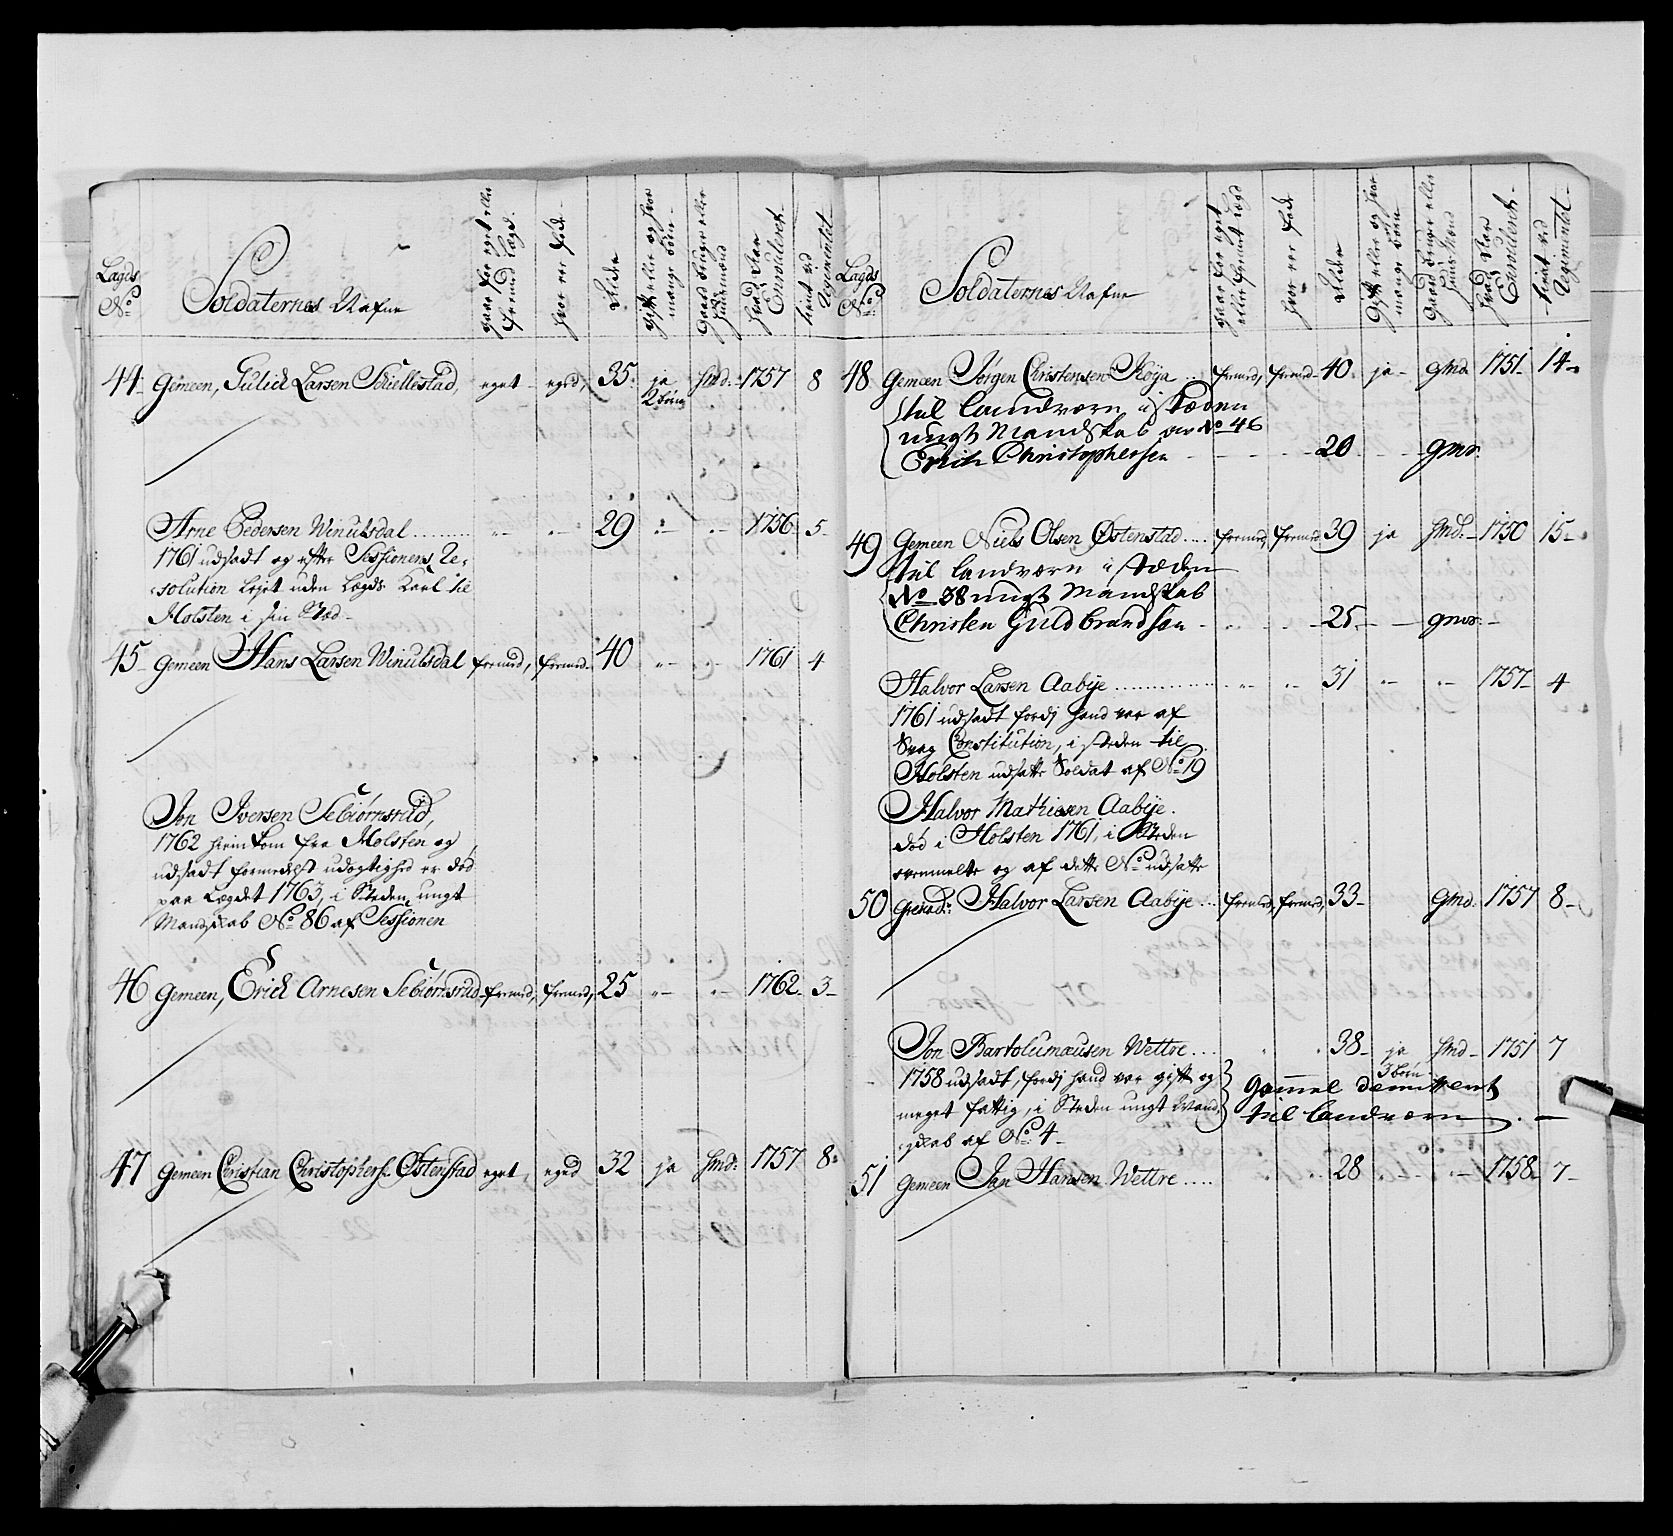 Lægds No
Soldaternes Nafne
gaar for eget eller fremd Lægd.
hvor er föd.
Alder
gift eller og hvor mange börn.
Gaard bruger eller Huusmænd
hvad Aar Enroulleret.
tient ved Regimentet
44 Gemeen, Gulick Larsen Schiellestad, eget eged, 35. ja 2 börn Hmd. 1757 8
Arne Pedersen Winulsdal 29 1756 5
1761 udsadt og efter Sessionens Re-
solution Lejet uden Lægds Karl til
Holsten i sin Stæd
45 Gemeen Hans Larsen Winulsdal fremed, fremed 40 1761 4
Jon Iversen Sebiörnsrud,
1762 hiemkom fra Holsten og
udsadt formedelst udögtighed er död
paa Lægdet 1763, i Steden ungt
Mandskab No 86 af Sessionen
46 Gemeen, Erick Arnesen Sebiörnsrud fremed, fremed, 25 1762 3
47 Gemeen Christian Christophers. Östenstad eget, eged 32 ja Hmd. 1757 8
Lægds No
Soldaternes Nafne
gaar for eget eller fremet Lægd
hvor er föd
Alder
Gift eller og hvor mange börn
Gaard bruger eller Huusmænd
hvad Aar Enroulleret
tient ved Regimentet
48 Gemeen Jörgen Christensen Röya fremed, fremed 40 ja Gmd 1751 14
til landværn i stæden
ungt Mandskab av No 46
Erich Christophersen 20 gmr.
49 Gemeen Niels Olsen Östenstad fremed, fremed 39 ja Hmd. 1750 15
til landværn i stæden
No 38 ungt Mandskab
Christen Guldbrandsen 25 gmr.
Halvor Larsen Aabye 31 1757 4
1761 udsadt fordj hand var af
Svag Constitution, i steden til
Holsten udsatte Soldat af No 19
Halvor Mathiesen Aabye.
död i Holsten 1761, i Steden
ovenmelte og af dette No udsatte
50 Grenad: Halvor Larsen Aabye fremed, fremed, 33 Gmd. 1757 8
Jon Bartolumæusen Wettre 38 ja 3 börn Hmd 1751 7
1758 udsadt, fordj hand var gift og
meget fattig, i Steden ungt Mand-
skab af No 4
Gammel demitteret
til landværn
51 Gemeen Jan Hansen Wettre 28 1758 7